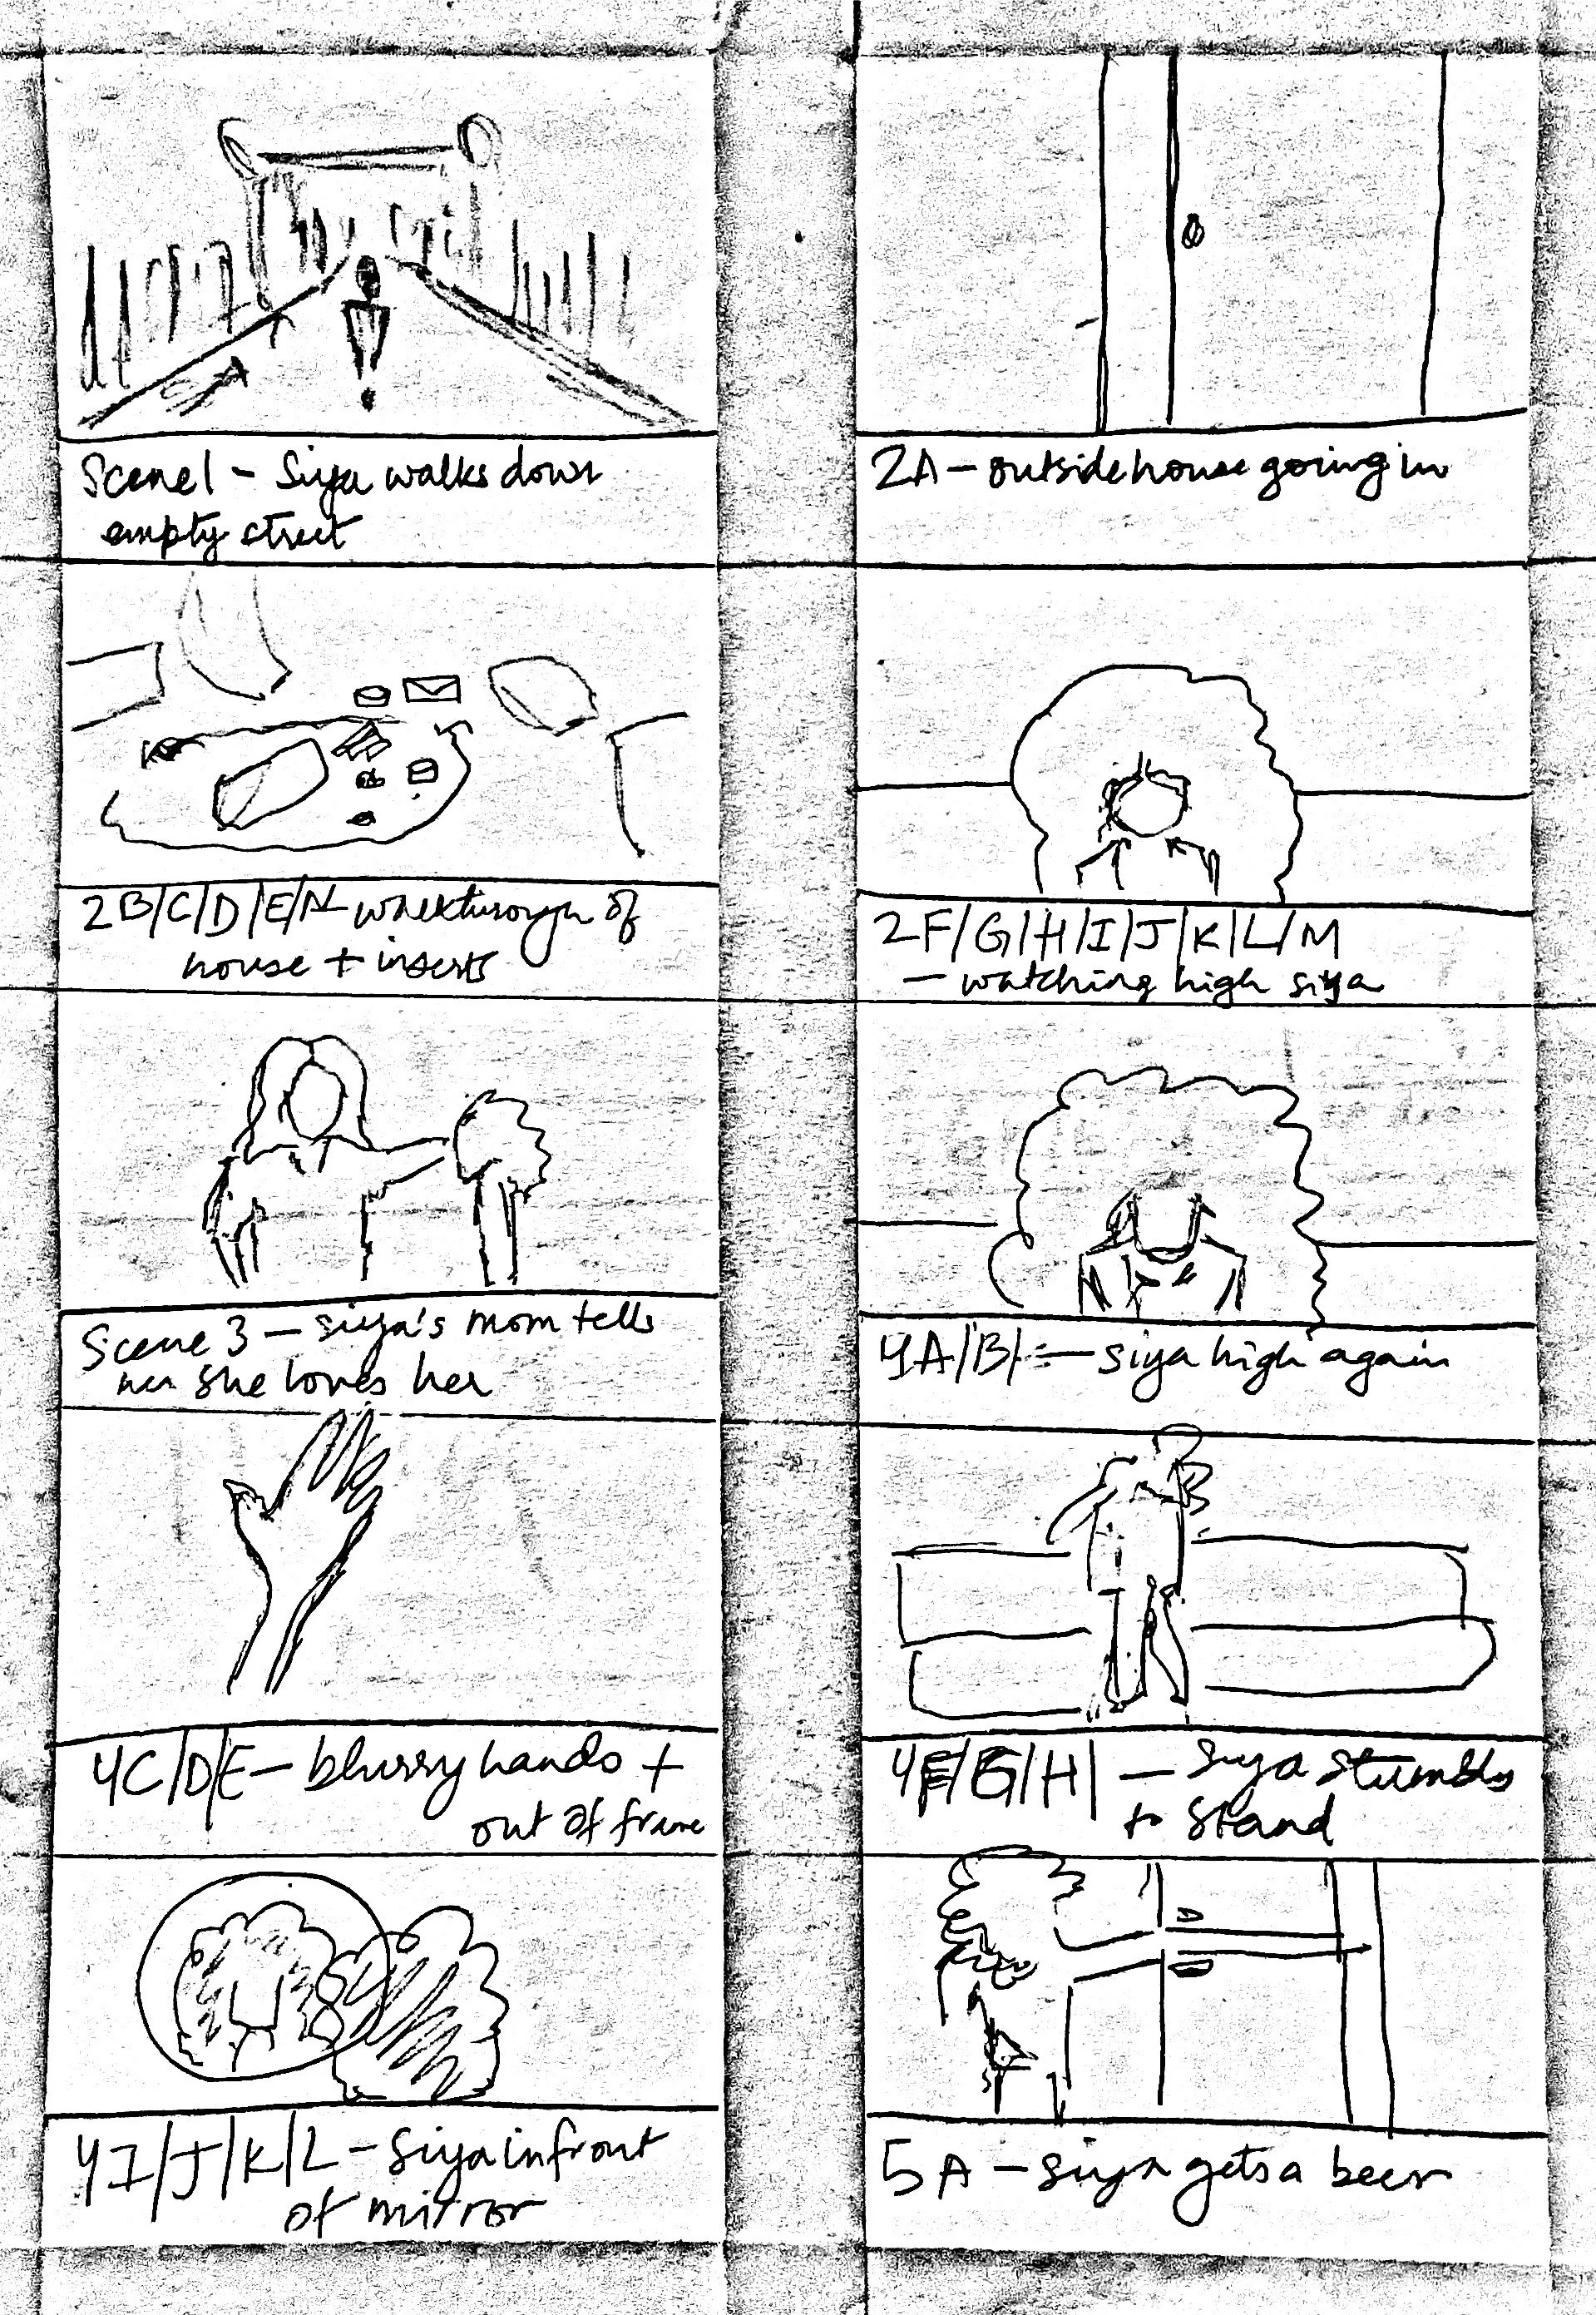 Scene 1 - Siya walks down
empty street
2A - outside house going in
2B/C/D/E/N - walkthrough of
house + inserts
2F/G/H/I/J/K/L/M
- watching high siya
Scene 3 - siya's mom tells
her she loves her
4A/B/ - siya high again
4C/D/E - blurry hands +
out of frame
4F/G/H/ - siya stumbles
to stand
4I/J/K/L - Siya in front
of mirror
5A - siya gets a beer